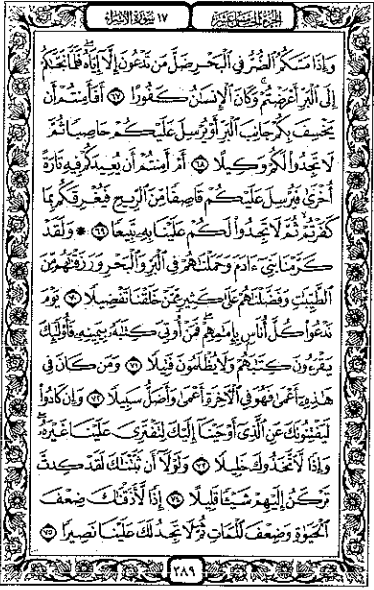 الجزء الخامس عشر
١٧ سورة الإسراء
وَإِذَا مَسَّكُمُ ٱلضُّرُّ فِي ٱلۡبَحۡرِ ضَلَّ مَن تَدۡعُونَ إِلَّآ إِيَّاهُۖ فَلَمَّا نَجَّىٰكُمۡ
إِلَى ٱلۡبَرِّ أَعۡرَضۡتُمۡۚ وَكَانَ ٱلۡإِنسَٰنُ كَفُورًا ٦٧ أَفَأَمِنتُمۡ أَن
يَخۡسِفَ بِكُمۡ جَانِبَ ٱلۡبَرِّ أَوۡ يُرۡسِلَ عَلَيۡكُمۡ حَاصِبٗا ثُمَّ
لَا تَجِدُواْ لَكُمۡ وَكِيلًا ٦٨ أَمۡ أَمِنتُمۡ أَن يُعِيدَكُمۡ فِيهِ تَارَةً
أُخۡرَىٰ فَيُرۡسِلَ عَلَيۡكُمۡ قَاصِفٗا مِّنَ ٱلرِّيحِ فَيُغۡرِقَكُم بِمَا
كَفَرۡتُمۡ ثُمَّ لَا تَجِدُواْ لَكُمۡ عَلَيۡنَا بِهِۦ تَبِيعٗا ٦٩ ۞ وَلَقَدۡ
كَرَّمۡنَا بَنِيٓ ءَادَمَ وَحَمَلۡنَٰهُمۡ فِي ٱلۡبَرِّ وَٱلۡبَحۡرِ وَرَزَقۡنَٰهُم مِّنَ
ٱلطَّيِّبَٰتِ وَفَضَّلۡنَٰهُمۡ عَلَىٰ كَثِيرٖ مِّمَّنۡ خَلَقۡنَا تَفۡضِيلٗا ٧٠ يَوۡمَ
نَدۡعُواْ كُلَّ أُنَاسِۭ بِإِمَٰمِهِمۡۖ فَمَنۡ أُوتِيَ كِتَٰبَهُۥ بِيَمِينِهِۦ فَأُوْلَٰٓئِكَ
يَقۡرَءُونَ كِتَٰبَهُمۡ وَلَا يُظۡلَمُونَ فَتِيلٗا ٧١ وَمَن كَانَ فِي
هَٰذِهِۦٓ أَعۡمَىٰ فَهُوَ فِي ٱلۡأٓخِرَةِ أَعۡمَىٰ وَأَضَلُّ سَبِيلٗا ٧٢ وَإِن كَادُواْ
لَيَفۡتِنُونَكَ عَنِ ٱلَّذِيٓ أَوۡحَيۡنَآ إِلَيۡكَ لِتَفۡتَرِيَ عَلَيۡنَا غَيۡرَهُۥۖ
وَإِذٗا لَّٱتَّخَذُوكَ خَلِيلٗا ٧٣ وَلَوۡلَآ أَن ثَبَّتۡنَٰكَ لَقَدۡ كِدتَّ
تَرۡكَنُ إِلَيۡهِمۡ شَيۡـٔٗا قَلِيلًا ٧٤ إِذٗا لَّأَذَقۡنَٰكَ ضِعۡفَ
ٱلۡحَيَوٰةِ وَضِعۡفَ ٱلۡمَمَاتِ ثُمَّ لَا تَجِدُ لَكَ عَلَيۡنَا نَصِيرٗا ٧٥
٢٨٩